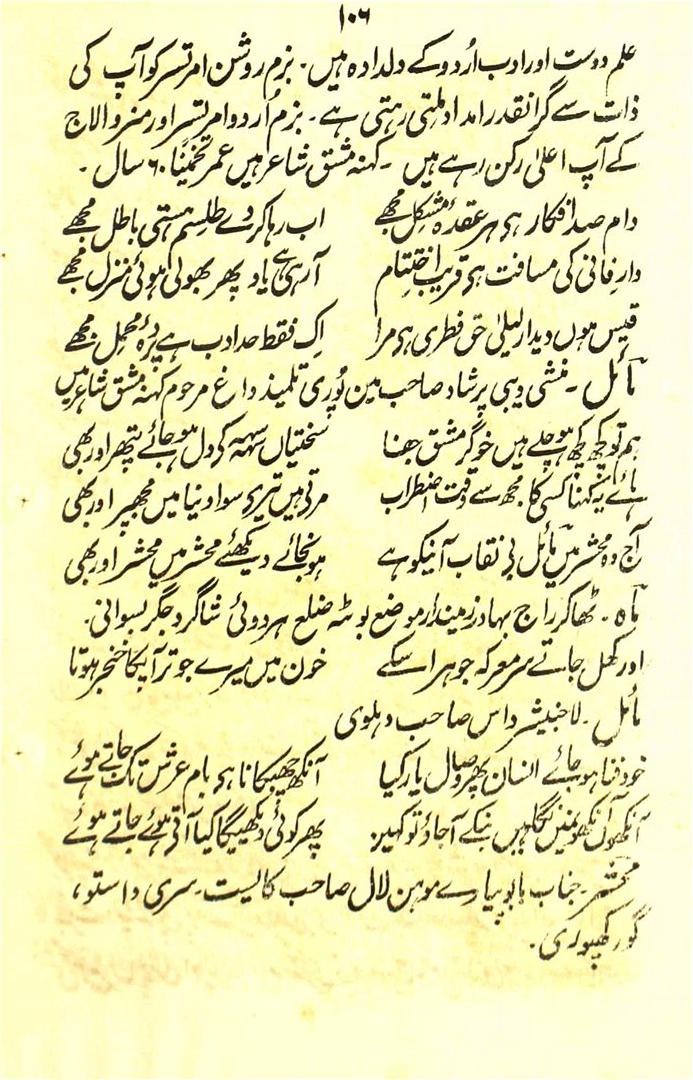 ۱۰۶
علم دوست اور ادب اُردو کے دلدادہ ہیں۔ بزم روشن امرتسر کو آپ کی
ذات سے گرانقدر امداد ملتی رہتی ہے۔ بزم اُردو امرتسر اور منروا لاج
کے آپ اعلیٰ رکن رہے ہیں ۔ کہنہ مشق شاعر ہیں عمر تخمیناً ۶۰ سال ۔
دام صد افکار ہی ہر عقدۂ مشکل مجھے اب رہا کر دے طلسم ہستی باطل مجھے
دار فانی کی مسافت ہی قریب اختتام آرہی ہے یاد پھر بھولی ہوئی منزل مجھے
قیس ہوں دیدار لیلیٰ حق فطری ہی مرا اِک فقط حد ادب ہے پردۂ محمل مجھے
مائل ۔ منشی دیبی پرشاد صاحب مین پُوری تلمیذ داغ مرحوم کہنہ مشق شاعر ہیں
ہم تو کچھ کچھ ہو چلے ہیں خوگر مشق جفا سختیاں سہہ کر دل ہو جائے پتھر اور بھی
ہائے یہ کہنا کسی کا مجھ سے وقت اضطراب مرتے ہیں تیری سوا دنیا میں مجھپر اور بھی
آج وہ محشر میں مائل بے نقاب آنیکو ہے ہو نجائے دیکھئے محشر میں محشر اور بھی
ماہ ۔ ٹھاکر راج بہادر زمیندار موضع بوٹہ ضلع ہردوئی شاگرد جگر بسوانی۔
اور کھل جاتے سر معرکہ جوہر اسکے خون میں میرے جو تر آپکا خنجر ہوتا
مائل ۔ لا جنیشر داس صاحب دہلوی
خود فنا ہو جائے انسان پھر وصال یار کیا آنکھ جھپکانا ہی بام عرش تک جاتے ہوئے
آنکھوں آنکھوں میں نگاہیں بنکے آ جاؤ تو کہیں پھر کوئی دیکھیگا کیا آتے ہوئے جاتے ہوئے
محشر ۔ جناب بابو پیارے موہن لال صاحب کالیست۔ سری واستو،
گورکھپوری۔